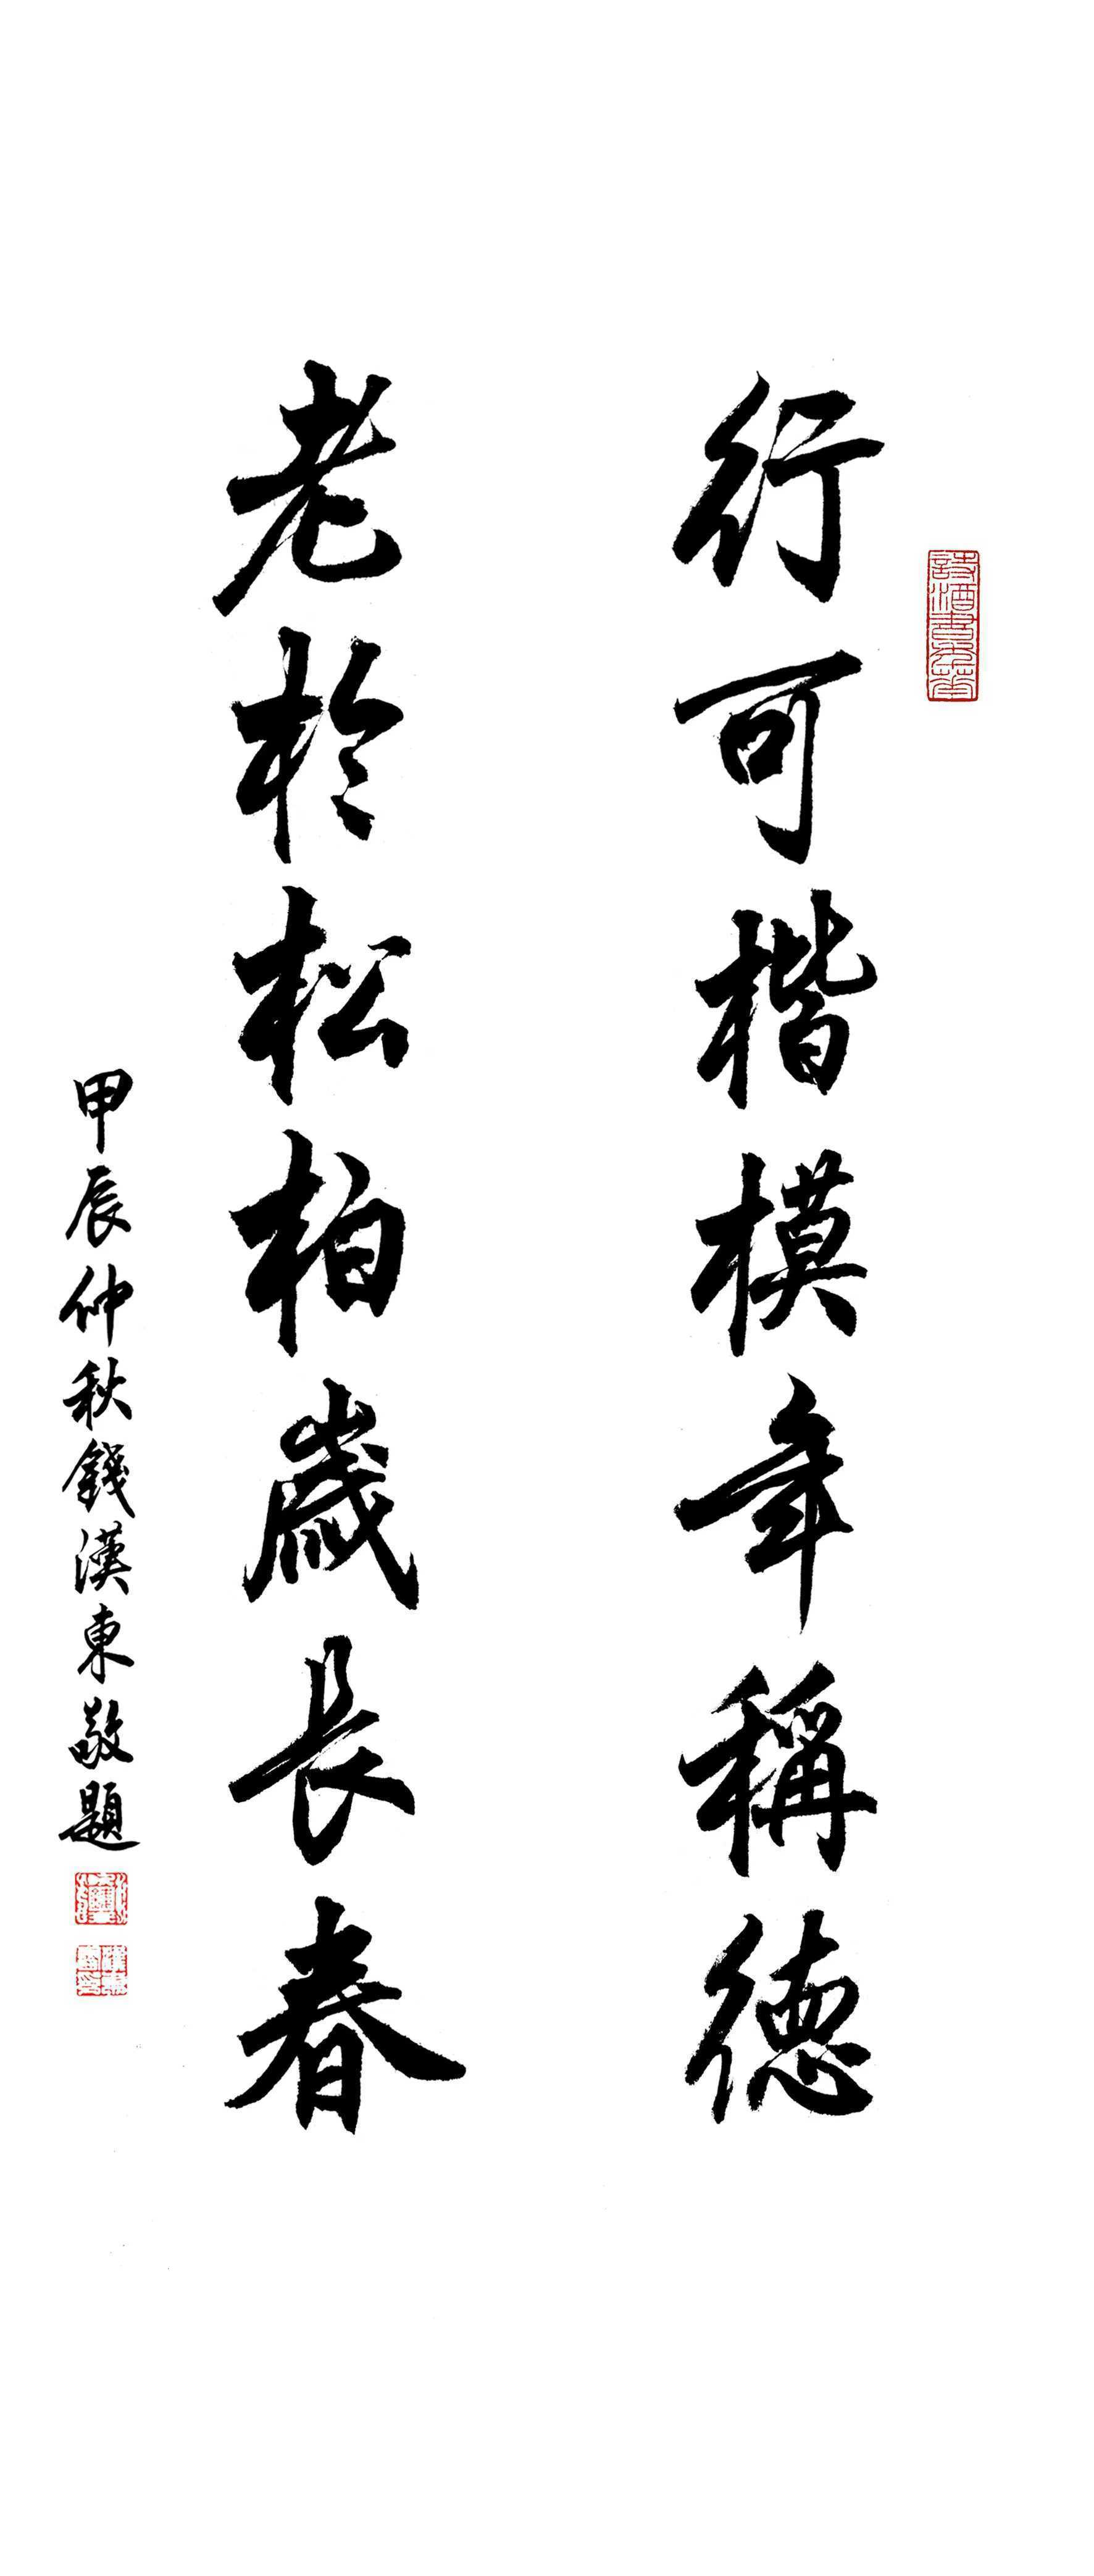 行可楷模年稱德
老於松柏歲長春
甲辰仲秋錢漢東敬題